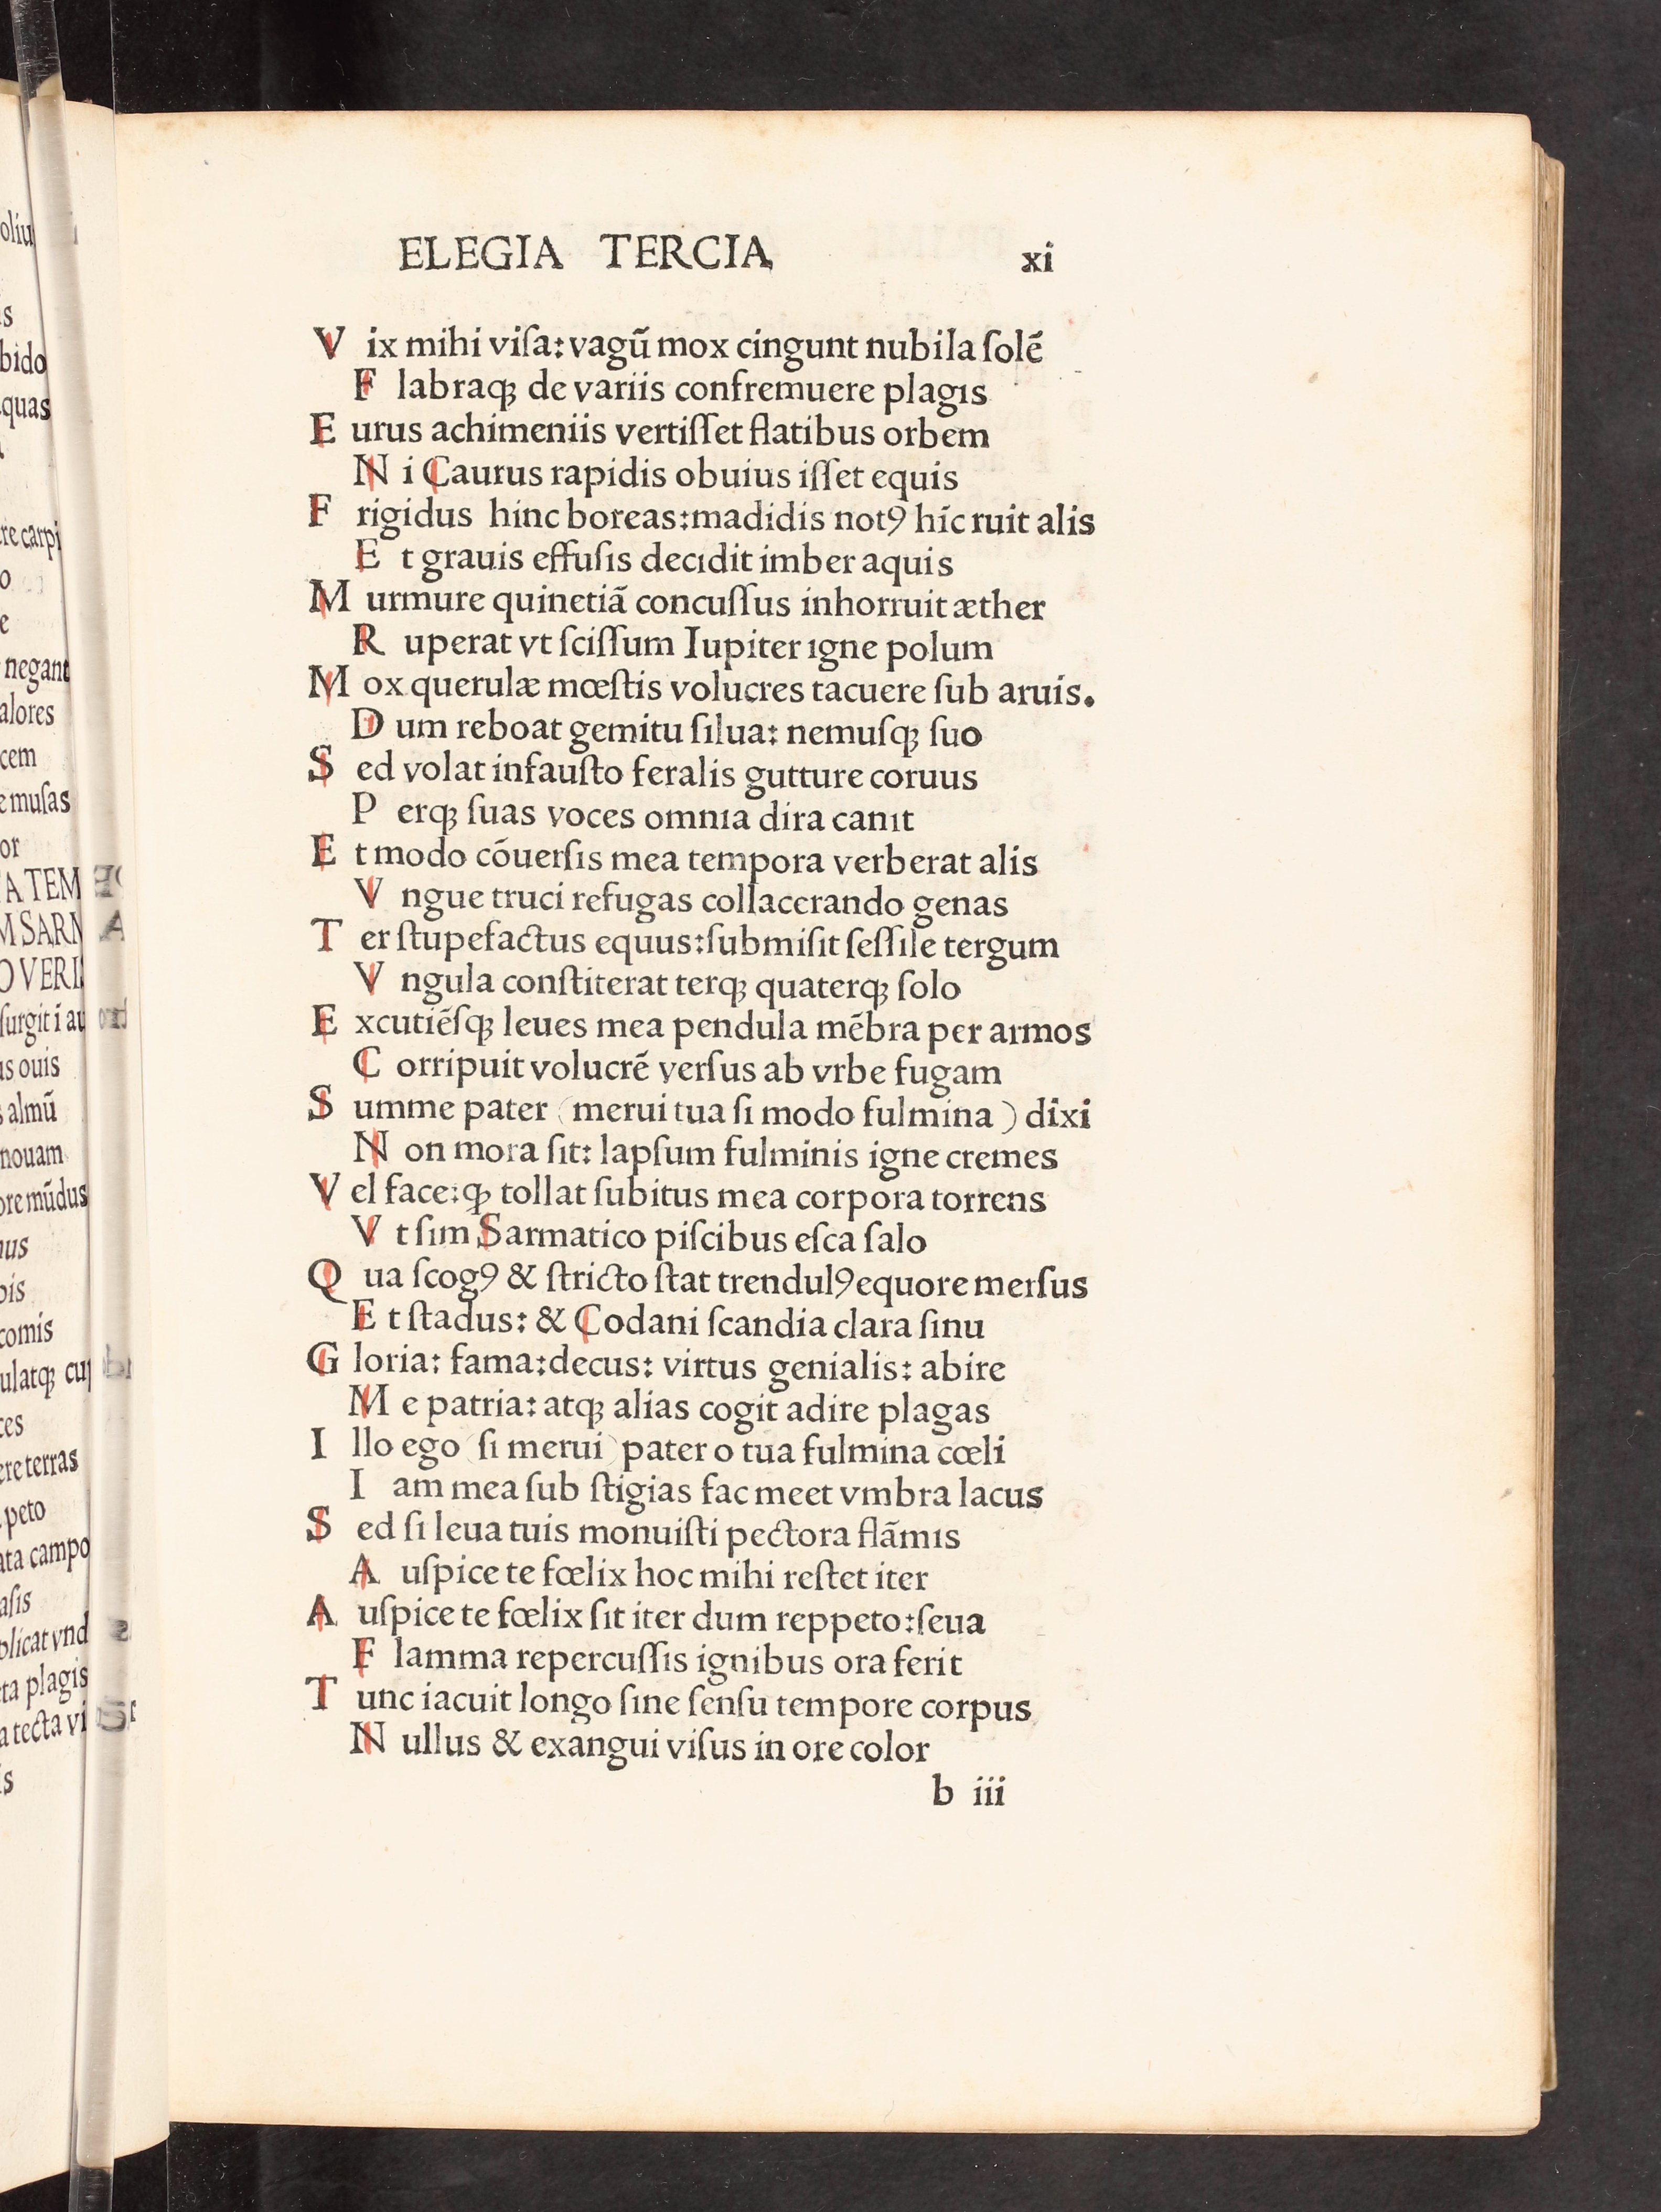 ELEGIA TERCIA xi
V ix mihi viſa: vagū mox cingunt nubila ſolē
F labraqꝫ de variis confremuere plagis
E urus achimeniis vertiſſet flatibus orbem
N i Caurus rapidis obuius iſſet equis
F rigidus hinc boreas: madidis notꝰ hīc ruit alis
E t grauis effuſis decidit imber aquis
M urmure quinetiā concuſſus inhorruit æther
R uperat vt ſciſſum Iupiter igne polum
M ox querulæ mœſtis volucres tacuere ſub aruis.
D um reboat gemitu ſilua: nemuſqꝫ ſuo
S ed volat infauſto feralis gutture coruus
P erqꝫ ſuas voces omnia dira canit
E t modo cōuerſis mea tempora verberat alis
V ngue truci refugas collacerando genas
T er ſtupefactus equus: ſubmiſit ſeſſile tergum
V ngula conſtiterat terqꝫ quaterqꝫ ſolo
E xcutiēſqꝫ leues mea pendula mēbra per armos
C orripuit volucrē verſus ab vrbe fugam
S umme pater (merui tua ſi modo fulmina) dixi
N on mora ſit: lapſum fulminis igne cremes
V el face: qꝫ tollat ſubitus mea corpora torrens
V t ſim Sarmatico piſcibus eſca ſalo
Q ua ſcogꝰ & ſtricto ſtat trendulꝰ equore merſus
E t ſtadus: & Codani ſcandia clara ſinu
G loria: fama: decus: virtus genialis: abire
M e patria: atqꝫ alias cogit adire plagas
I llo ego (ſi merui) pater o tua fulmina cœli
I am mea ſub ſtigias fac meet vmbra lacus
S ed ſi leua tuis monuiſti pectora flāmis
A uſpice te fœlix hoc mihi reſtet iter
A uſpice te fœlix ſit iter dum reppeto: ſeua
F lamma repercuſſis ignibus ora ferit
T unc iacuit longo ſine ſenſu tempore corpus
N ullus & exangui viſus in ore color
b iii